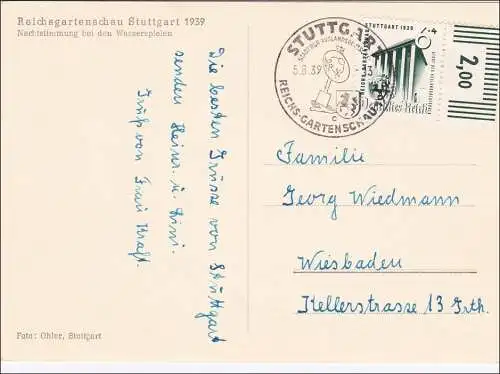 Reichsgartenschau Stuttgart 1939
Nachtstimmung bei den Wasserspielen
STUTTGART
5.8.39
REICHS-GARTENSCHAU
c
STUTTGART 1939
6+4
Deutsches Reich
2,00
Die besten Grüsse von Stuttgart
senden Heiner. u. Dini.
Gruß von Frau Kraft.
Familie
Georg Wiedmann
Wiesbaden
Kellerstrasse 13 Prth.
Foto: Ohler, Stuttgart